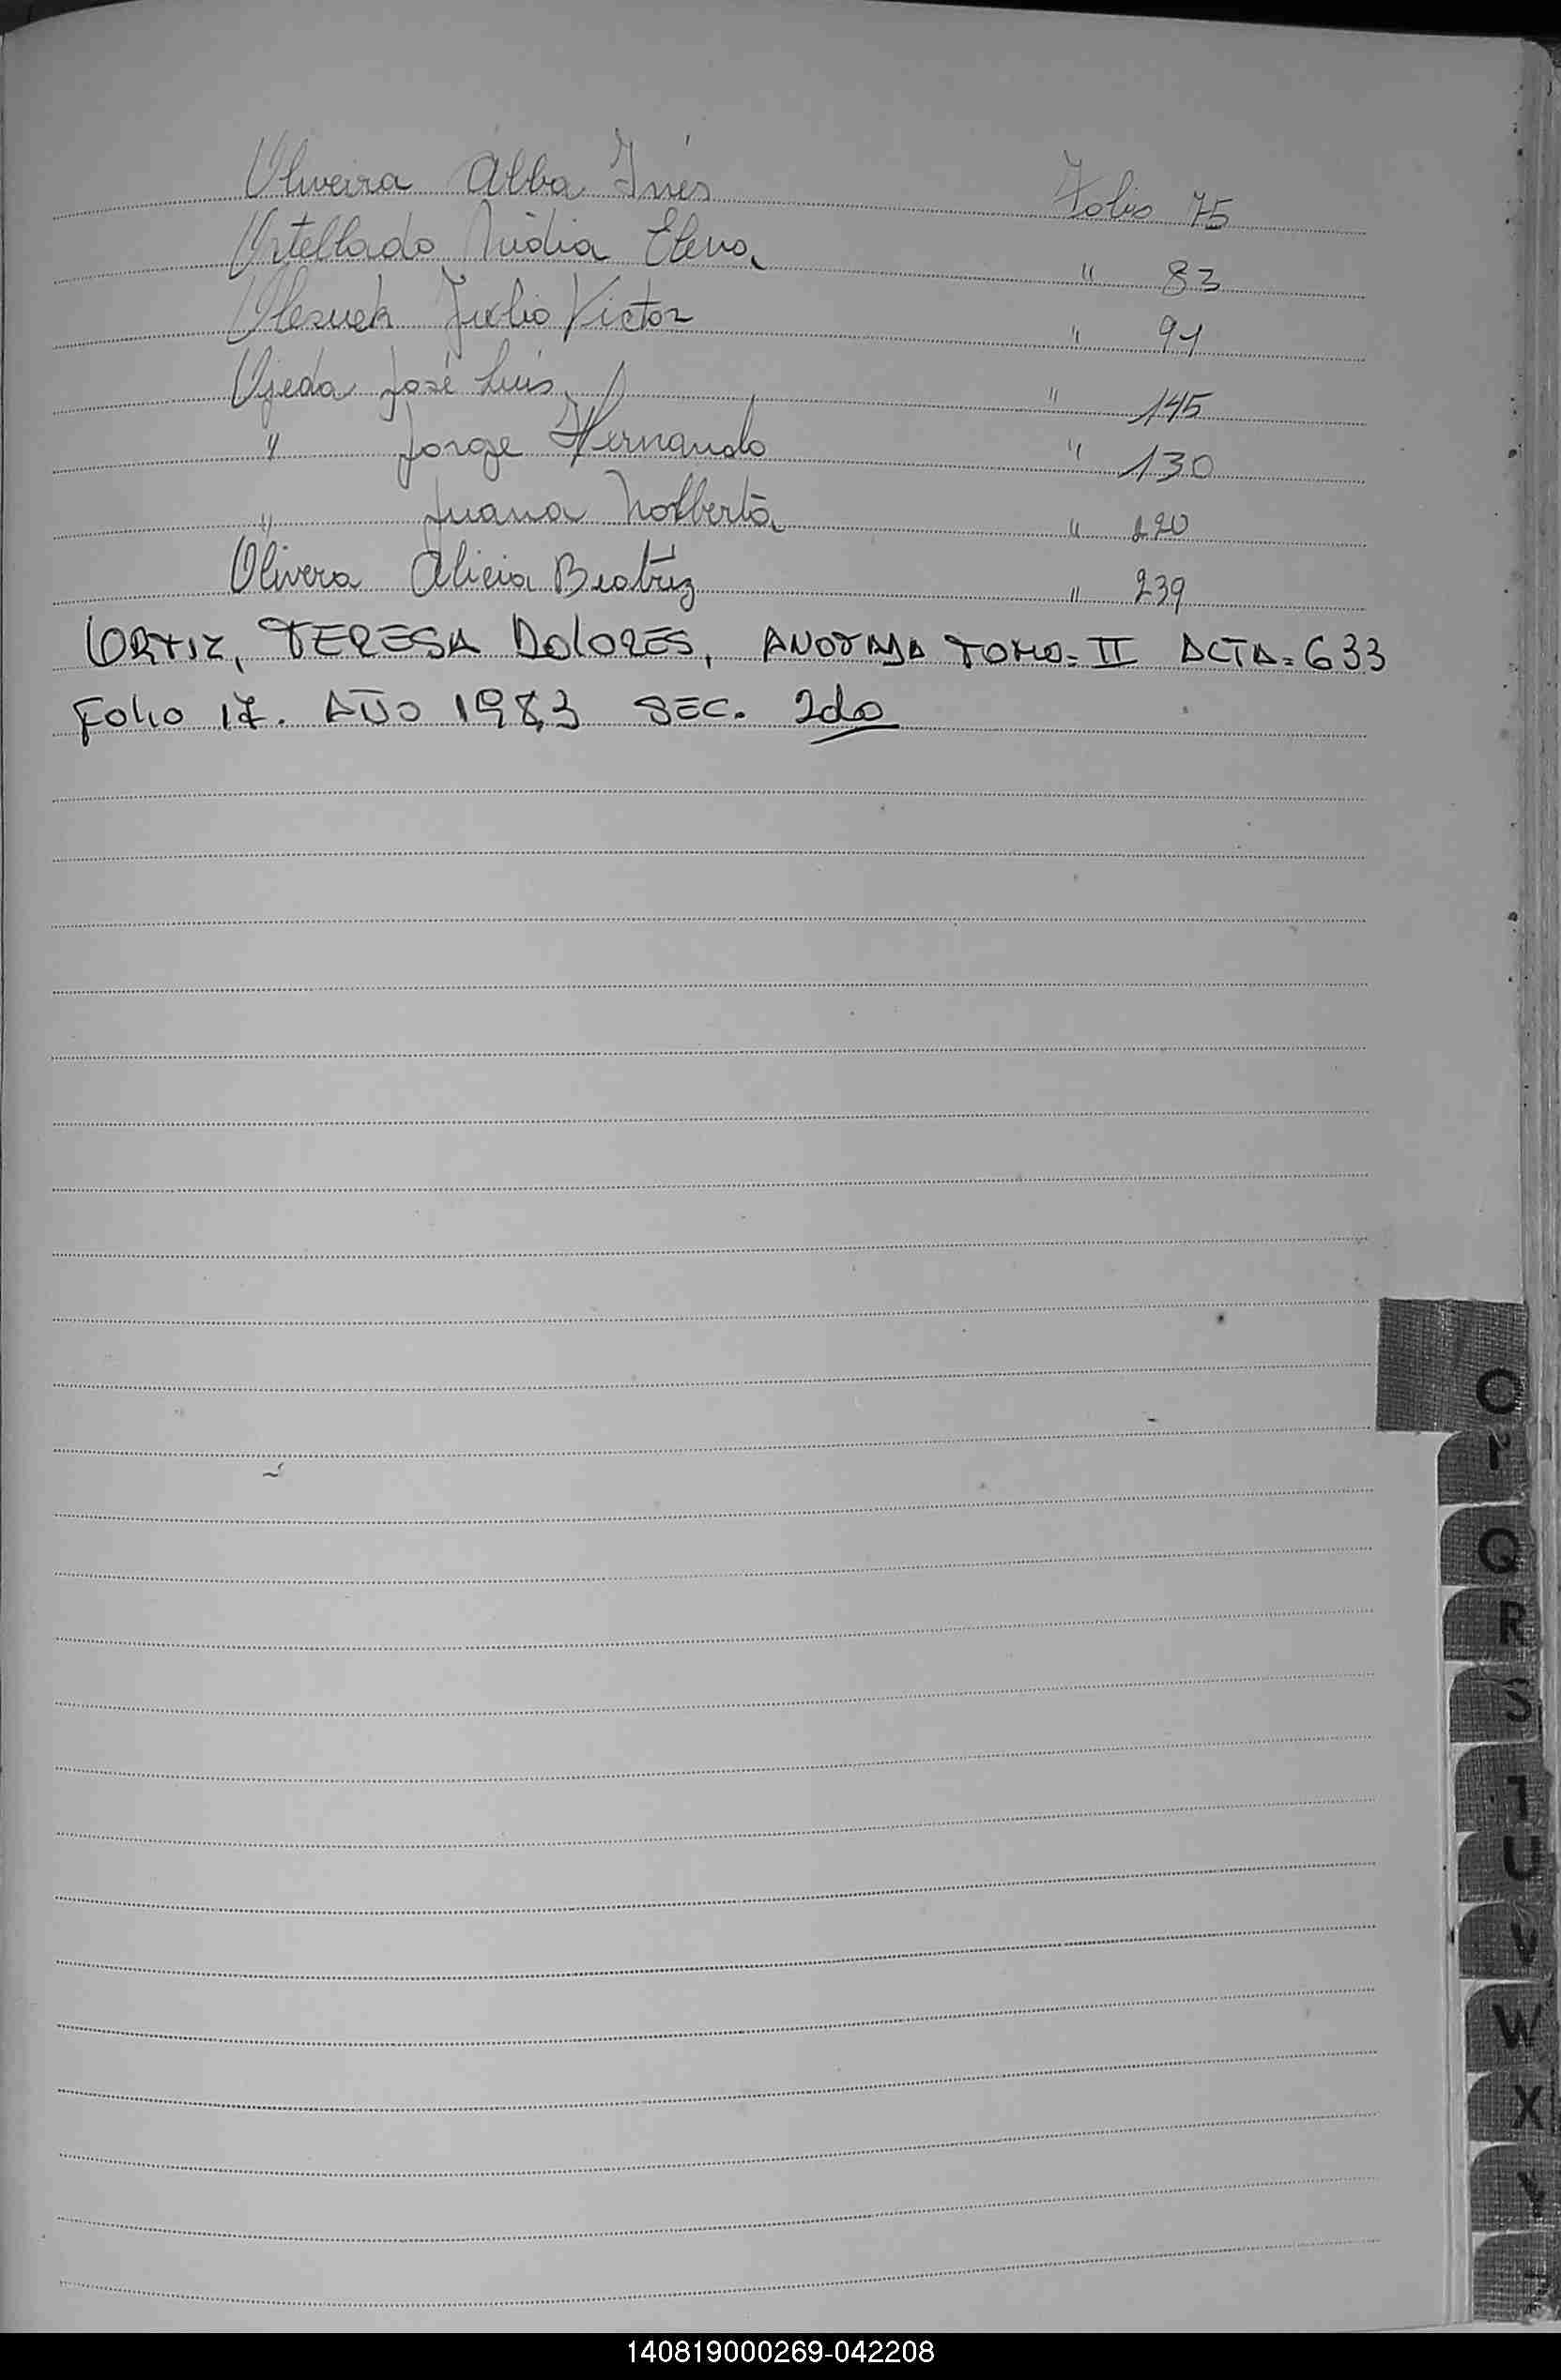 Oliveira Alba Inés Folio 75
Ortellado Nidia Elena " 83
Olesuek Julio Victor " 91
Ojeda José Luis " 145
" Jorge Hernando " 130
" Juana Nolberta " 220
Olivera Alicia Beatriz " 239
ORTIZ, TERESA DOLORES, ANOTADA TOMO=II ACTA=633
FOLIO 17. AÑO 1983 SEC. 2da
O
P
Q
R
S
T
U
V
W
X
Y
Z
140819000269-042208